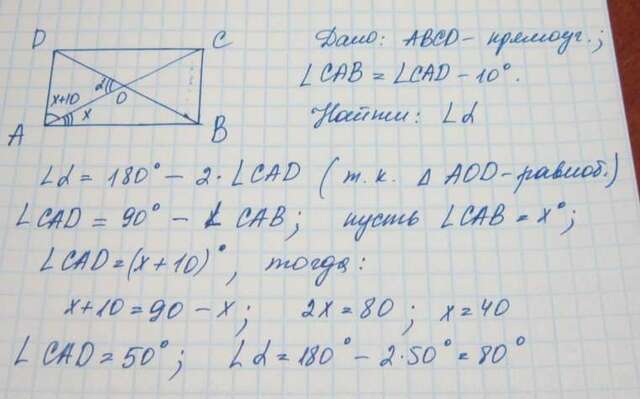 D C
Дано: ABCD - прямоуг.;
∠CAB = ∠CAD - 10°.
x+10 α O x
A B
Найти: ∠α
∠α = 180° - 2·∠CAD (т.к. Δ AOD - равноб.)
∠CAD = 90° - ∠ CAB; пусть ∠CAB = x°;
∠CAD = (x + 10)°, тогда:
x+10 = 90 - x; 2x = 80; x = 40
∠CAD = 50°; ∠α = 180° - 2·50° = 80°